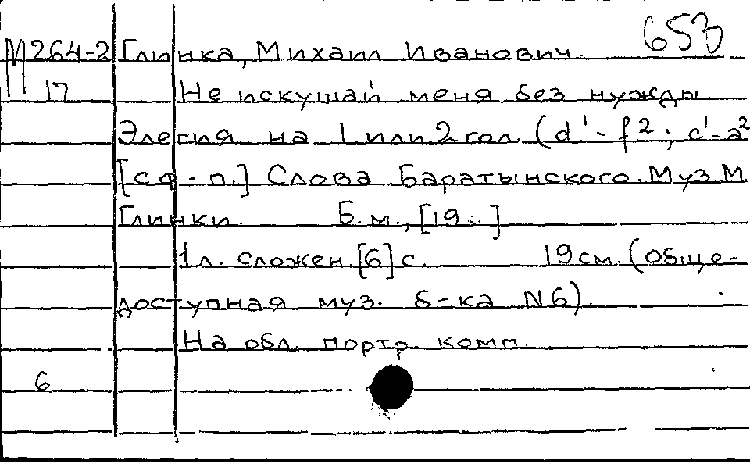 653
М264-2 Глинка, Михаил Иванович.
17 Не искушай меня без нужды
Элегия на 1 или 2 гол. (d¹-f²; c¹-a²
[с ф-п.] Слова Баратынского. Муз М
Глинки Б.м., [19..]
1 л. сложен. [6] с. 19 см. (Обще-
доступная муз. б-ка N6)
На обл. портр. комп.
6